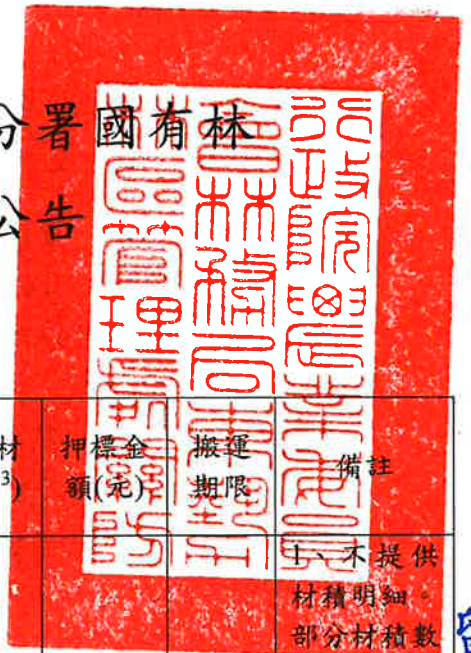 分署國有林
公告
行政院農業委員
會林務局東勢
林區管理處關防
材
³)
押標金
額(元)
搬運
期限
備註
1、不提供
材積明細。
部分材積數